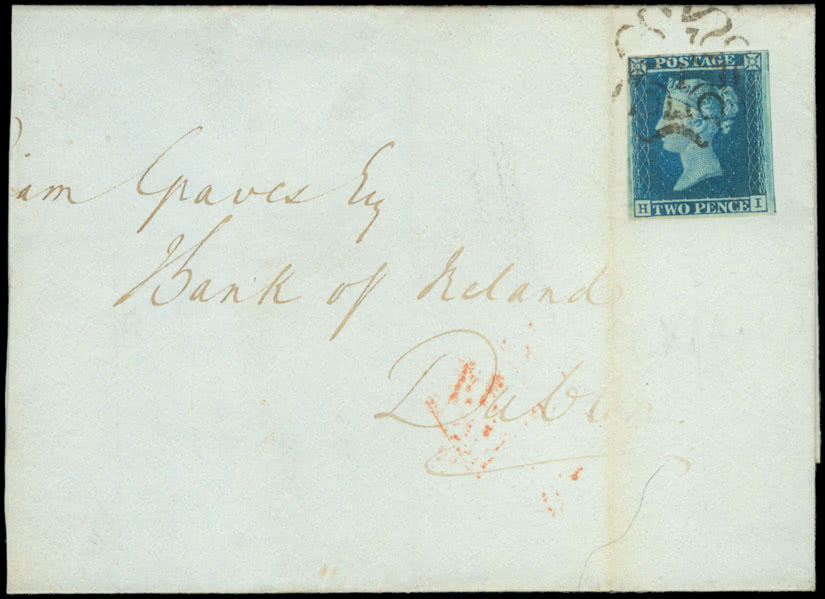 7
POSTAGE
TWO PENCE
H I
iam Graves Esq
Bank of Ireland
Dublin